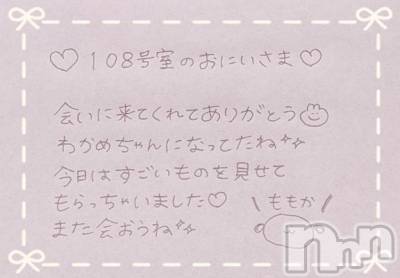 ♡108号室のおにいさま♡
会いに来てくれてありがとう
わかめちゃんになってたね✨
今日はすごいものを見せて
もらっちゃいました♡
また会おうね✨
\ ももか /
Nmn